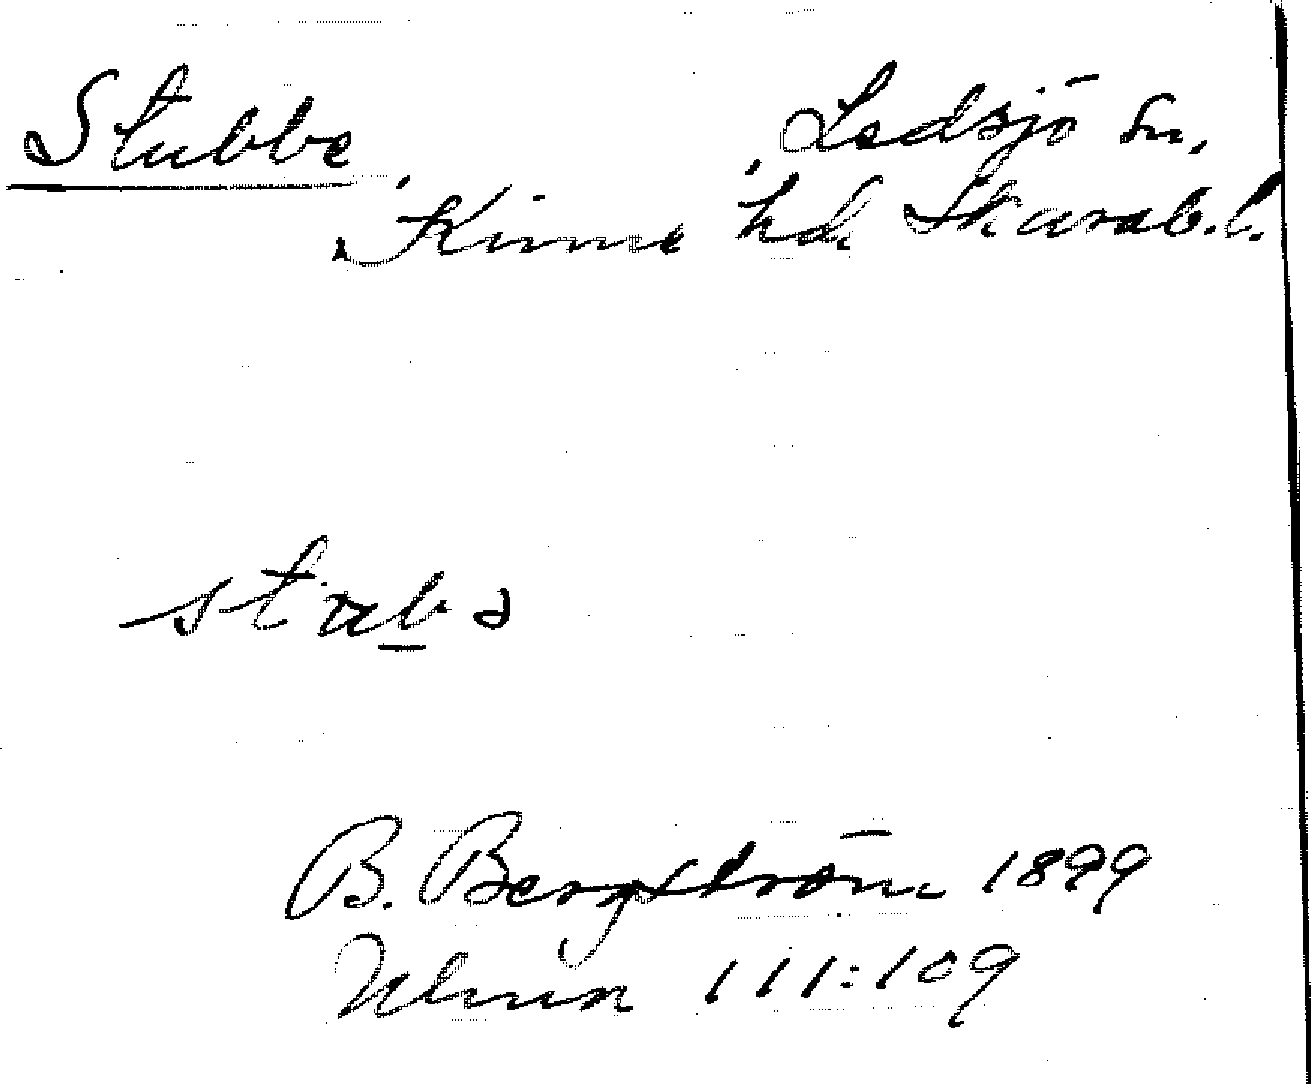 Stubbe
Ledsjö sn,
Kinne hd, Skarab. l.
stubə
B. Bergström 1899
111:109